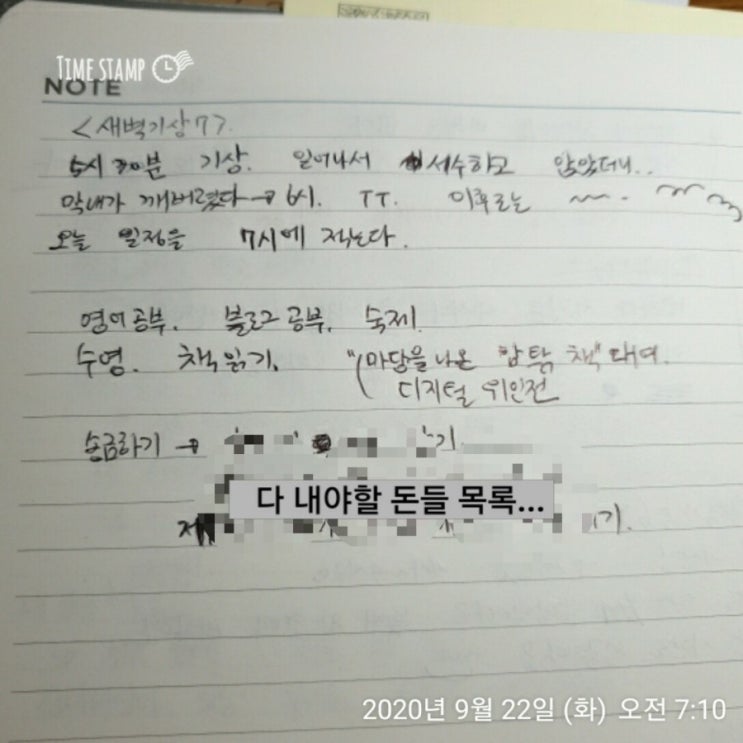 TIME STAMP
NOTE
<새벽기상 7>.
5시 30분 기상. 일어나서 세수하고 앉았더니..
막내가 깨버렸다 → 6시. TT. 이후로는 ~~.
오늘 일정을 7시에 적는다.
영어공부. 블로그 공부. 숙제.
수영. 책읽기. "마당을 나온 암탉 책" 대여.
디지털 위인전
송금하기 →
다 내야할 돈들 목록...
2020년 9월 22일 (화) 오전 7:10